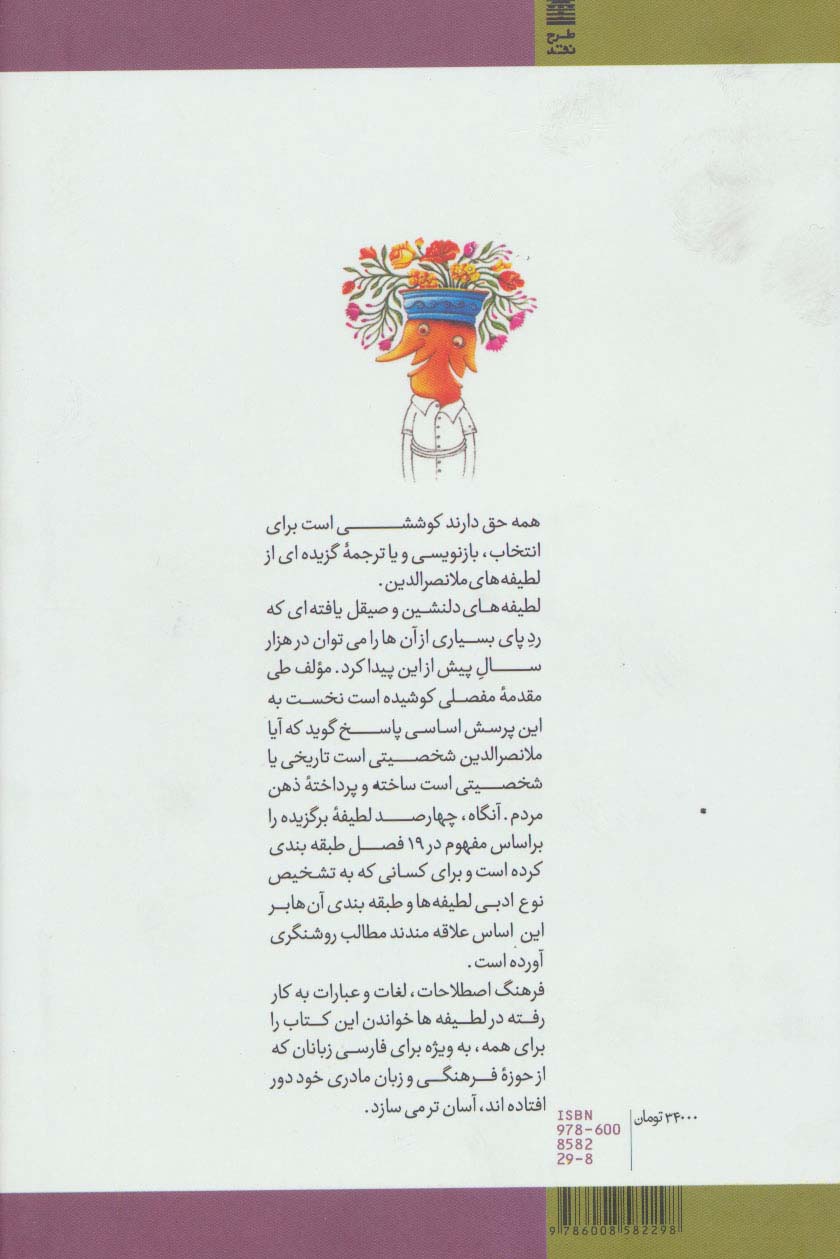 طرح
نقد
همه حق دارند کوششی است برای
انتخاب، بازنویسی و یا ترجمهٔ گزیده ای از
لطیفه‌های ملانصرالدین.
لطیفه‌های دلنشین و صیقل یافته ای که
ردِ پای بسیاری از آن ها را می توان در هزار
سالِ پیش از این پیدا کرد. مؤلف طی
مقدمهٔ مفصلی کوشیده است نخست به
این پرسش اساسی پاسخ گوید که آیا
ملانصرالدین شخصیتی است تاریخی یا
شخصیتی است ساخته و پرداختهٔ ذهن
مردم. آنگاه، چهارصد لطیفهٔ برگزیده را
براساس مفهوم در ۱۹ فصل طبقه بندی
کرده است و برای کسانی که به تشخیص
نوع ادبی لطیفه‌ها و طبقه بندی آن ها بر
این اساس علاقه مندند مطالب روشنگری
آورده است.
فرهنگ اصطلاحات، لغات و عبارات به کار
رفته در لطیفه ها خواندن این کتاب را
برای همه، به ویژه برای فارسی زبانان که
از حوزهٔ فرهنگی و زبان مادری خود دور
افتاده اند، آسان تر می سازد.
۳۴۰۰۰ تومان
ISBN
978-600
8582
29-8
9 786008 582298